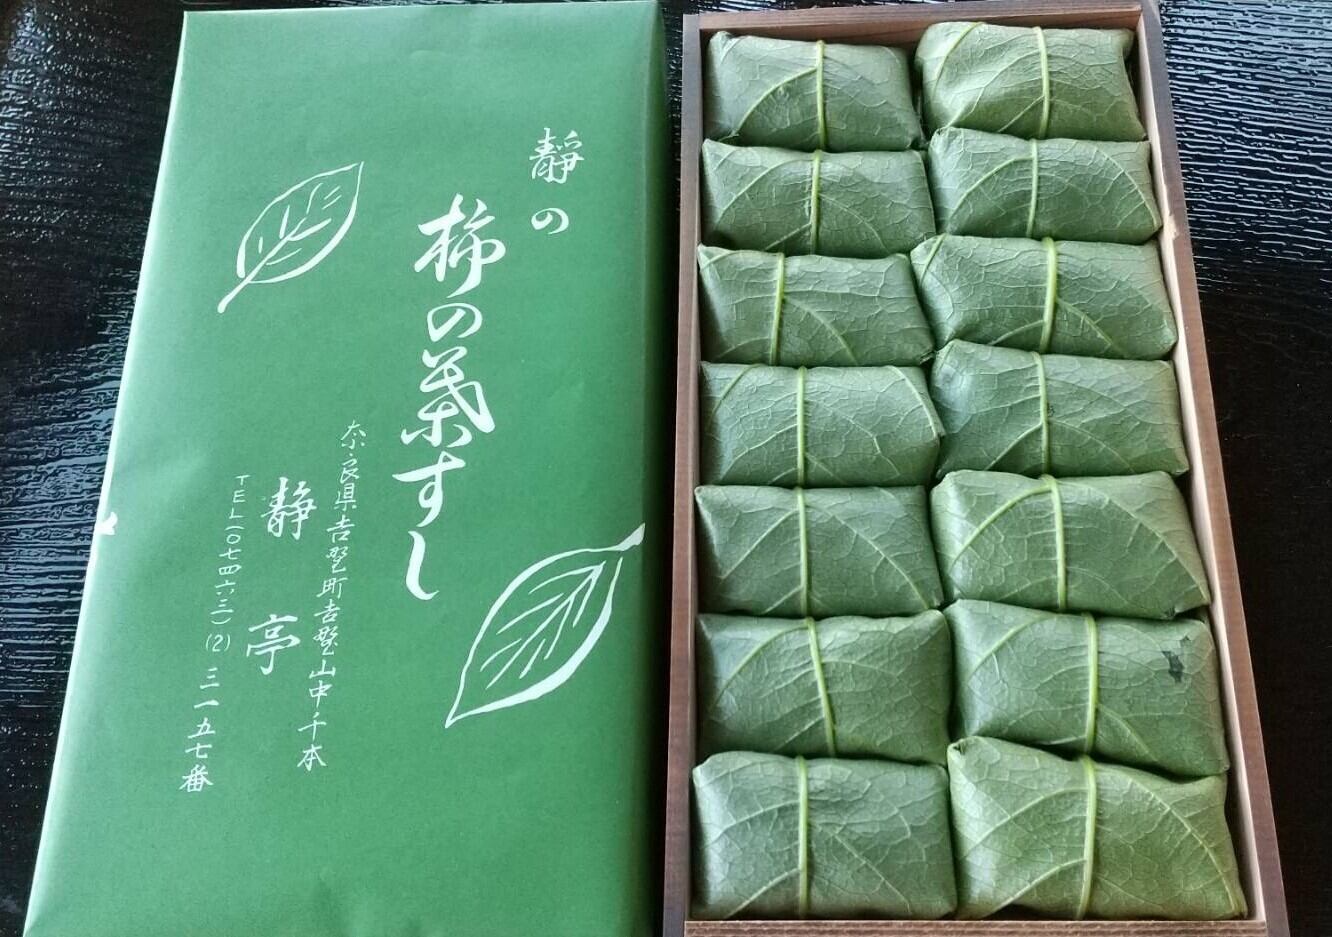 靜の
柿の葉すし
奈良県吉野町吉野山中千本
静亭
TEL(〇七四六三)(2)三一五七番